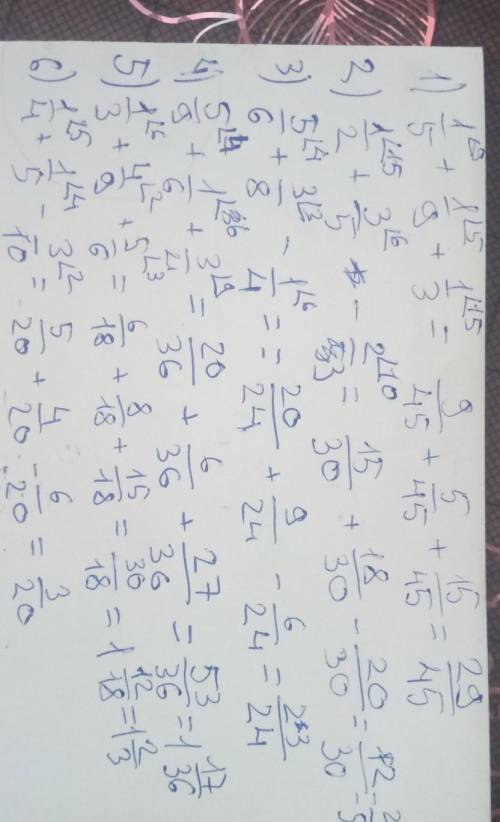 1) 1/5 ⌊9 + 1/9 ⌊5 + 1/3 ⌊15 = 9/45 + 5/45 + 15/45 = 29/45
2) 1/2 ⌊15 + 3/5 ⌊6 - 2/3 ⌊10 = 15/30 + 18/30 - 20/30 = 12/30 = 2/5
3) 5/6 ⌊4 + 3/8 ⌊3 - 1/4 ⌊6 = = 20/24 + 9/24 - 6/24 = 23/24
4) 5/9 ⌊4 + 1/6 ⌊6 + 3/4 ⌊9 = 20/36 + 6/36 + 27/36 = 53/36 = 1 17/36
5) 1/3 ⌊6 + 4/9 ⌊2 + 5/6 ⌊3 = 6/18 + 8/18 + 15/18 = 30/18 = 1 12/18 = 1 2/3
6) 1/4 ⌊5 + 1/5 ⌊4 - 3/10 ⌊2 = 5/20 + 4/20 - 6/20 = 3/20